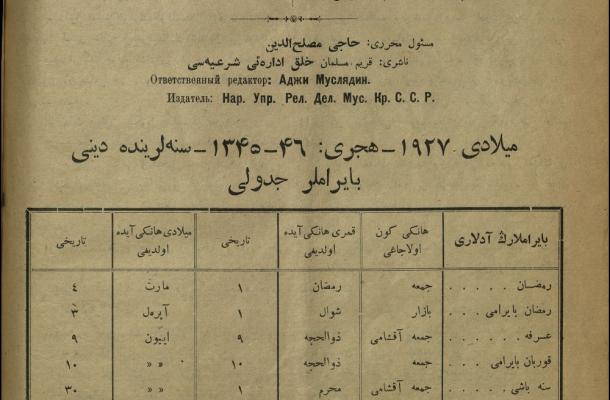 مسئول محرری: حاجی مصلح‌الدین
ناشری: قریم مسلمان خلق اداره‌ئی شرعیه‌سی
Ответственный редактор: Аджи Муслядин.
Издатель: Нар. Упр. Рел. Дел. Мус. Кр. С. С. Р.
میلادی ١٩٢٧ – هجری: ٤٦–١٣٤٥ – سنه‌لرینده دینی
بایراملر جدولی
بایراملارڭ آدلاری هانكی كون اولاجاغی قمری هانكی‌آیده اولدیغی تاریخی میلادی هانكی‌آیده اولدیغی تاریخی
رمضان . . . . . جمعه رمضان ١ مارت ٤
رمضان بایرامی . . . بازار شوال ١ آپره‌ل ٣
عرفه . . . . . جمعه آقشامی ذوالحجه ٩ اییون ٩
قوربان بایرامی . . . جمعه ذوالحجه ١٠ » » ١٠
سنه باشی . . . . جمعه آقشامی محرم ١ » » ٣٠